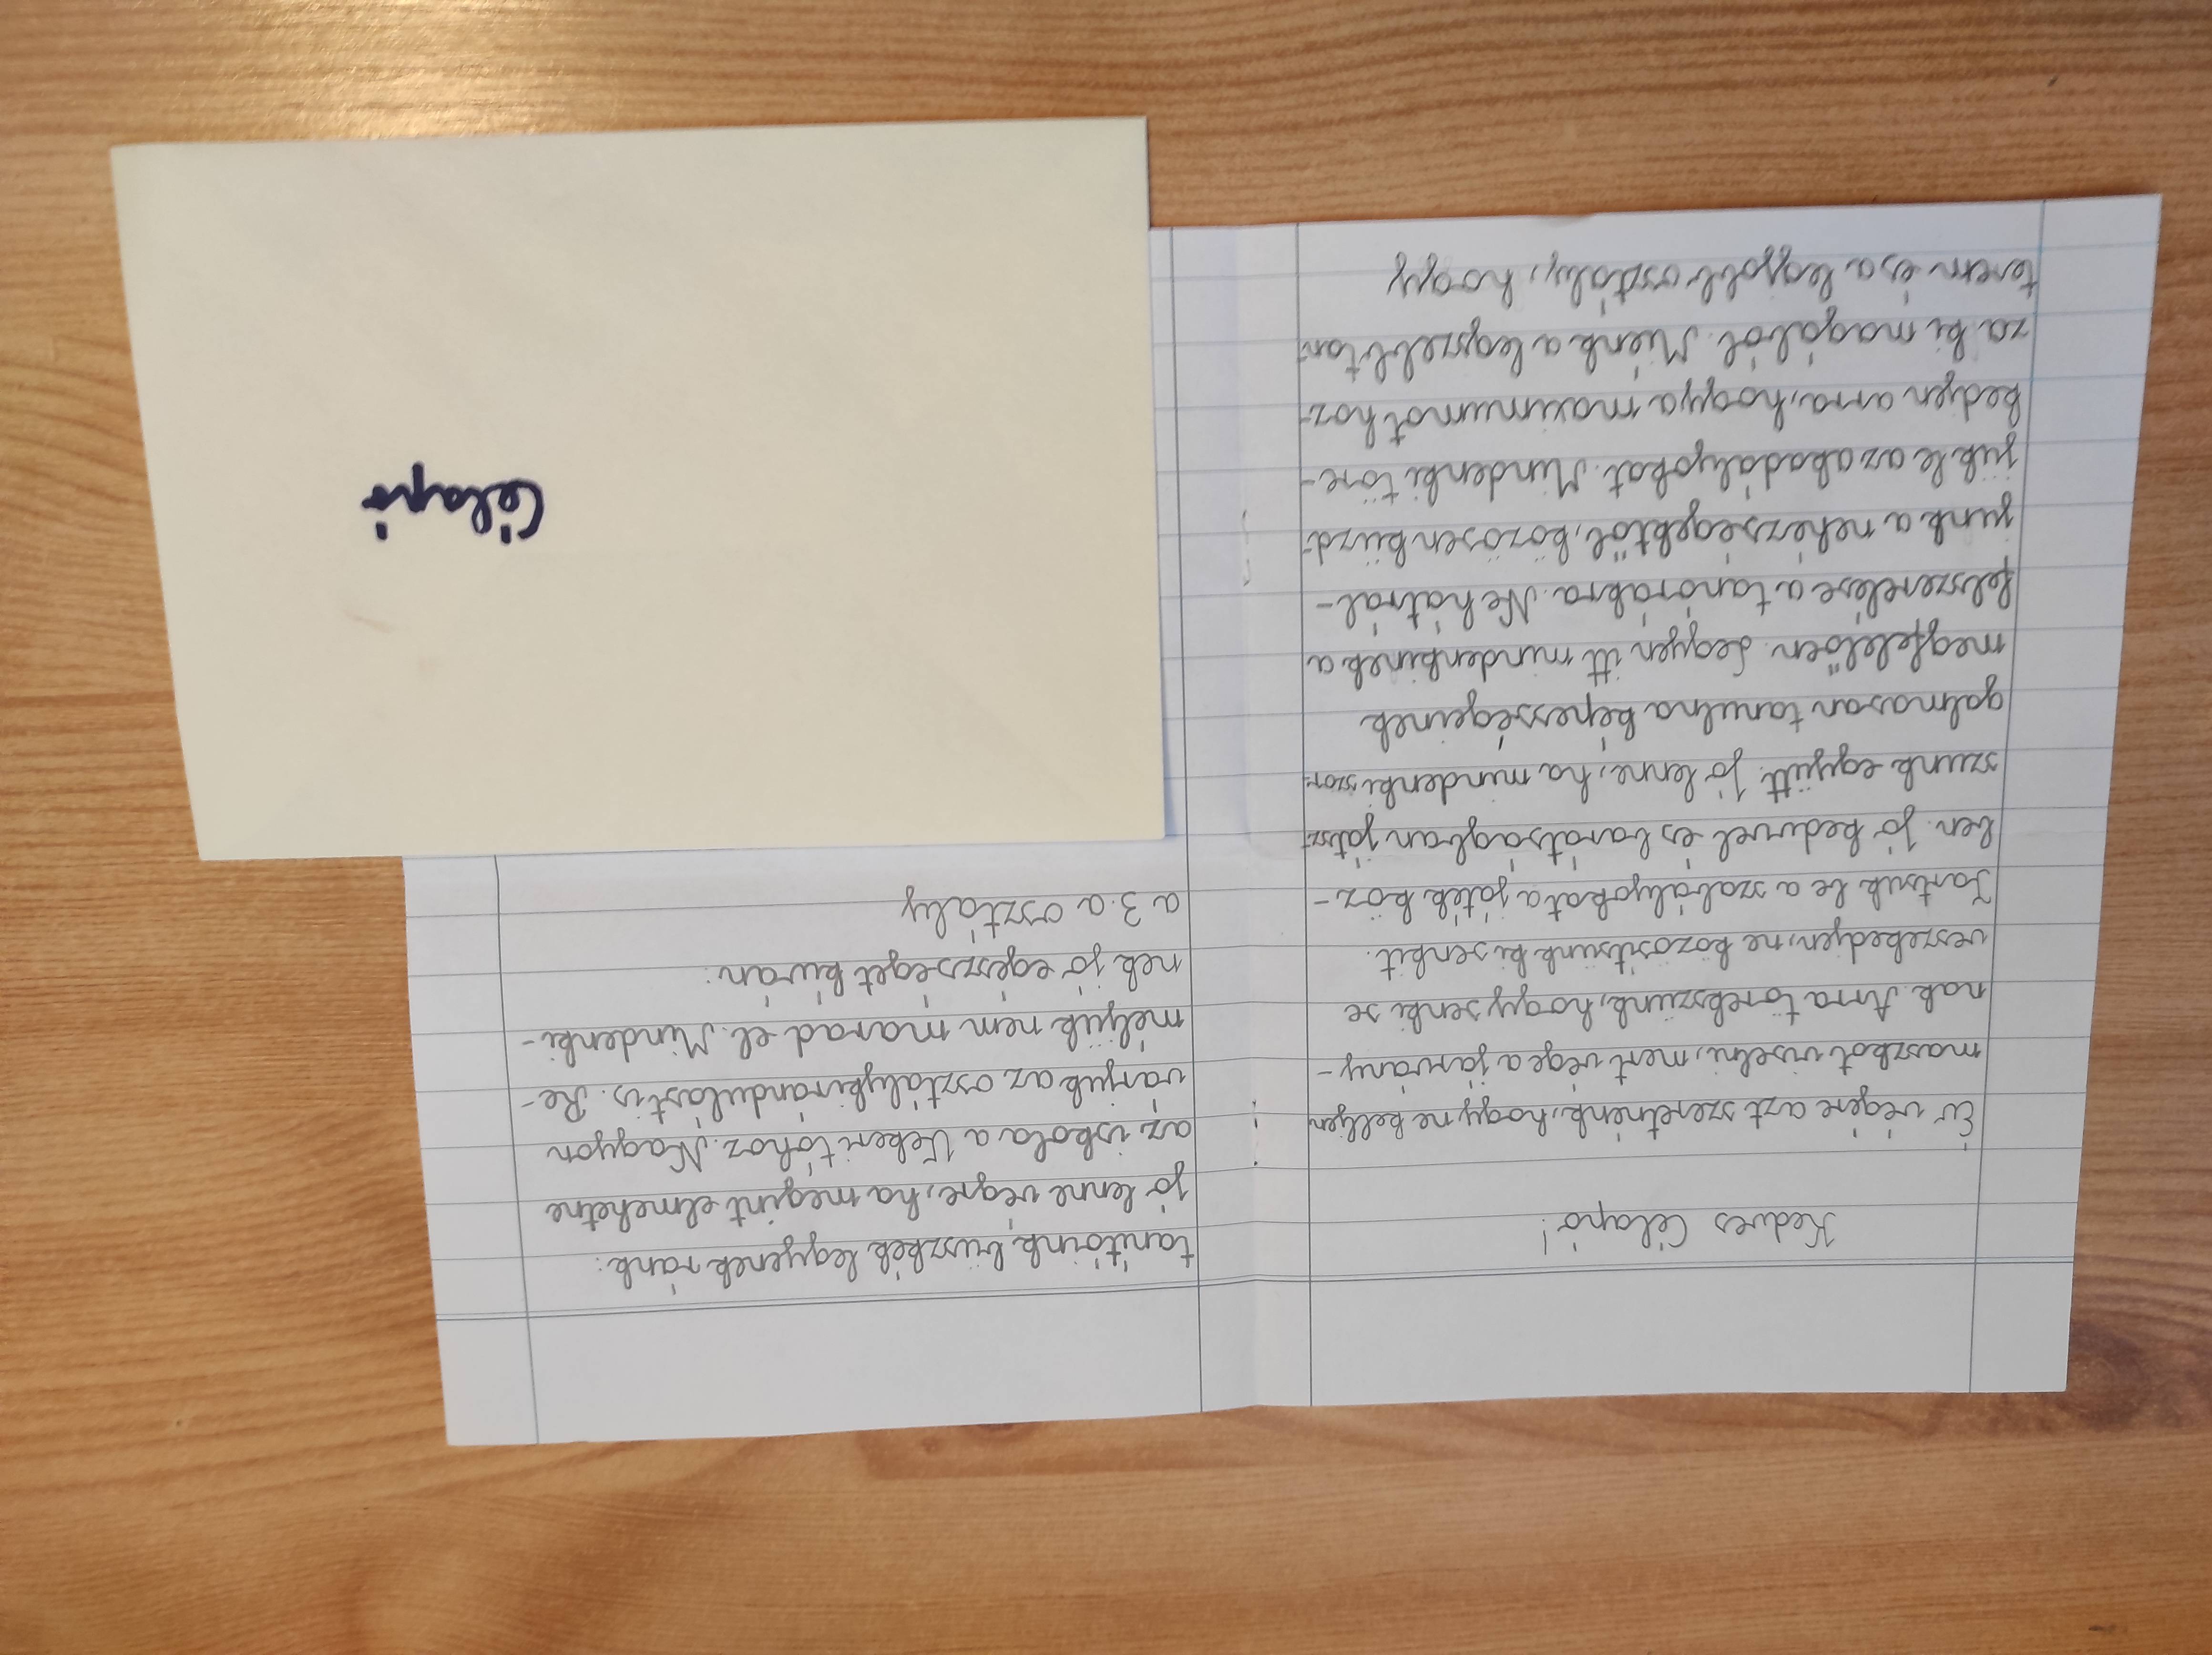 Kedves Célapó!
Év végére azt szeretnénk, hogy ne kelljen
maszkot viselni, mert vége a járvány-
nak. Arra törekszünk, hogy senki se
veszekedjen, ne közösítsünk ki senkit.
Tartsuk be a szabályokat a játék köz-
ben. Jó kedvvel és barátságban játsz-
szunk együtt. Jó lenne, ha mindenki szor-
galmasan tanulna képességeinek
megfelelően. Legyen itt mindenkinek a
felszerelése a tanórákra. Ne hátrál-
junk a nehézségektől, közösen küzd-
jük le az akadályokat. Mindenki töre-
kedjen arra, hogy a maximumot hoz-
za ki magából. Miénk a legszebb tan-
terem és a legjobb osztály, hogy
tanítóink büszkék legyenek ránk.
Jó lenne végre, ha megint elmehetne
az iskola a Vekeri tóhoz. Nagyon
várjuk az osztálykirándulást is. Re-
méljük nem marad el. Mindenki-
nek jó egészséget kíván:
a 3. a osztály
Célapó